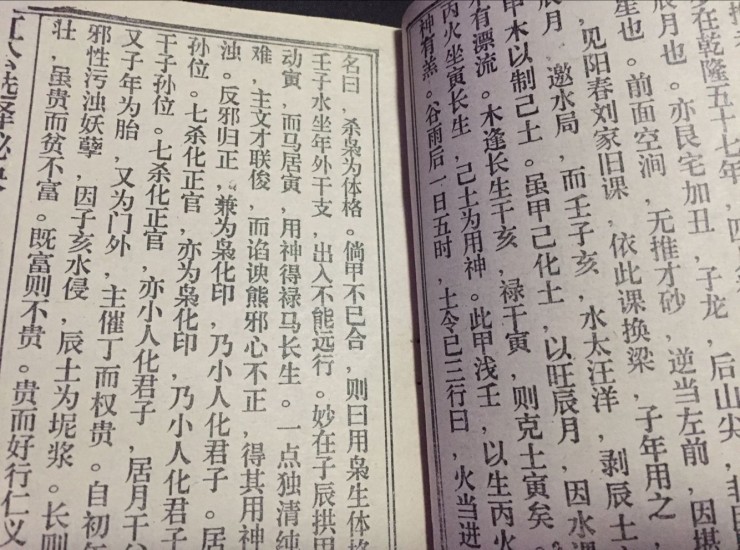 在乾隆五十七年，四
辰月也。亦艮宅加丑，子龙，后山尖，非
星也。前面空涧，无推才砂，逆当左前，因堪
，见阳春刘家旧课，依此课换梁，子年用之
辰月，邀水局，而壬子亥，水太汪洋，剥辰土
甲木以制己土。虽甲己化土，以旺辰月，因水课
水有漂流。木逢长生于亥，禄于寅，则克土寅矣
丙火坐寅长生，己土为用神。此甲浅壬，以生丙火
神有羔。谷雨后一日五时，土令已三行曰，火当进
名曰，杀枭为体格。倘甲不已合，则曰用枭生体格
壬子水坐年外干支，出入不能远行。妙在子辰拱甲
动寅，而马居寅，用神得禄马长生。一点独清纯
难，主文才联俊，而谄谀熊邪心不正，得其用神
浊。反邪归正，兼为枭化印，乃小人化君子。居
孙位。七杀化正官，亦为枭化印，乃小人化君子
干子孙位。七杀化正官，亦小人化君子，居月干
又子年为胎，又为门外，主催丁而权贵。自初年
邪性污浊妖孽，因子亥水侵，辰土为坭浆。长
壮，虽贵而贫不富。既富则不贵。贵而好行仁义